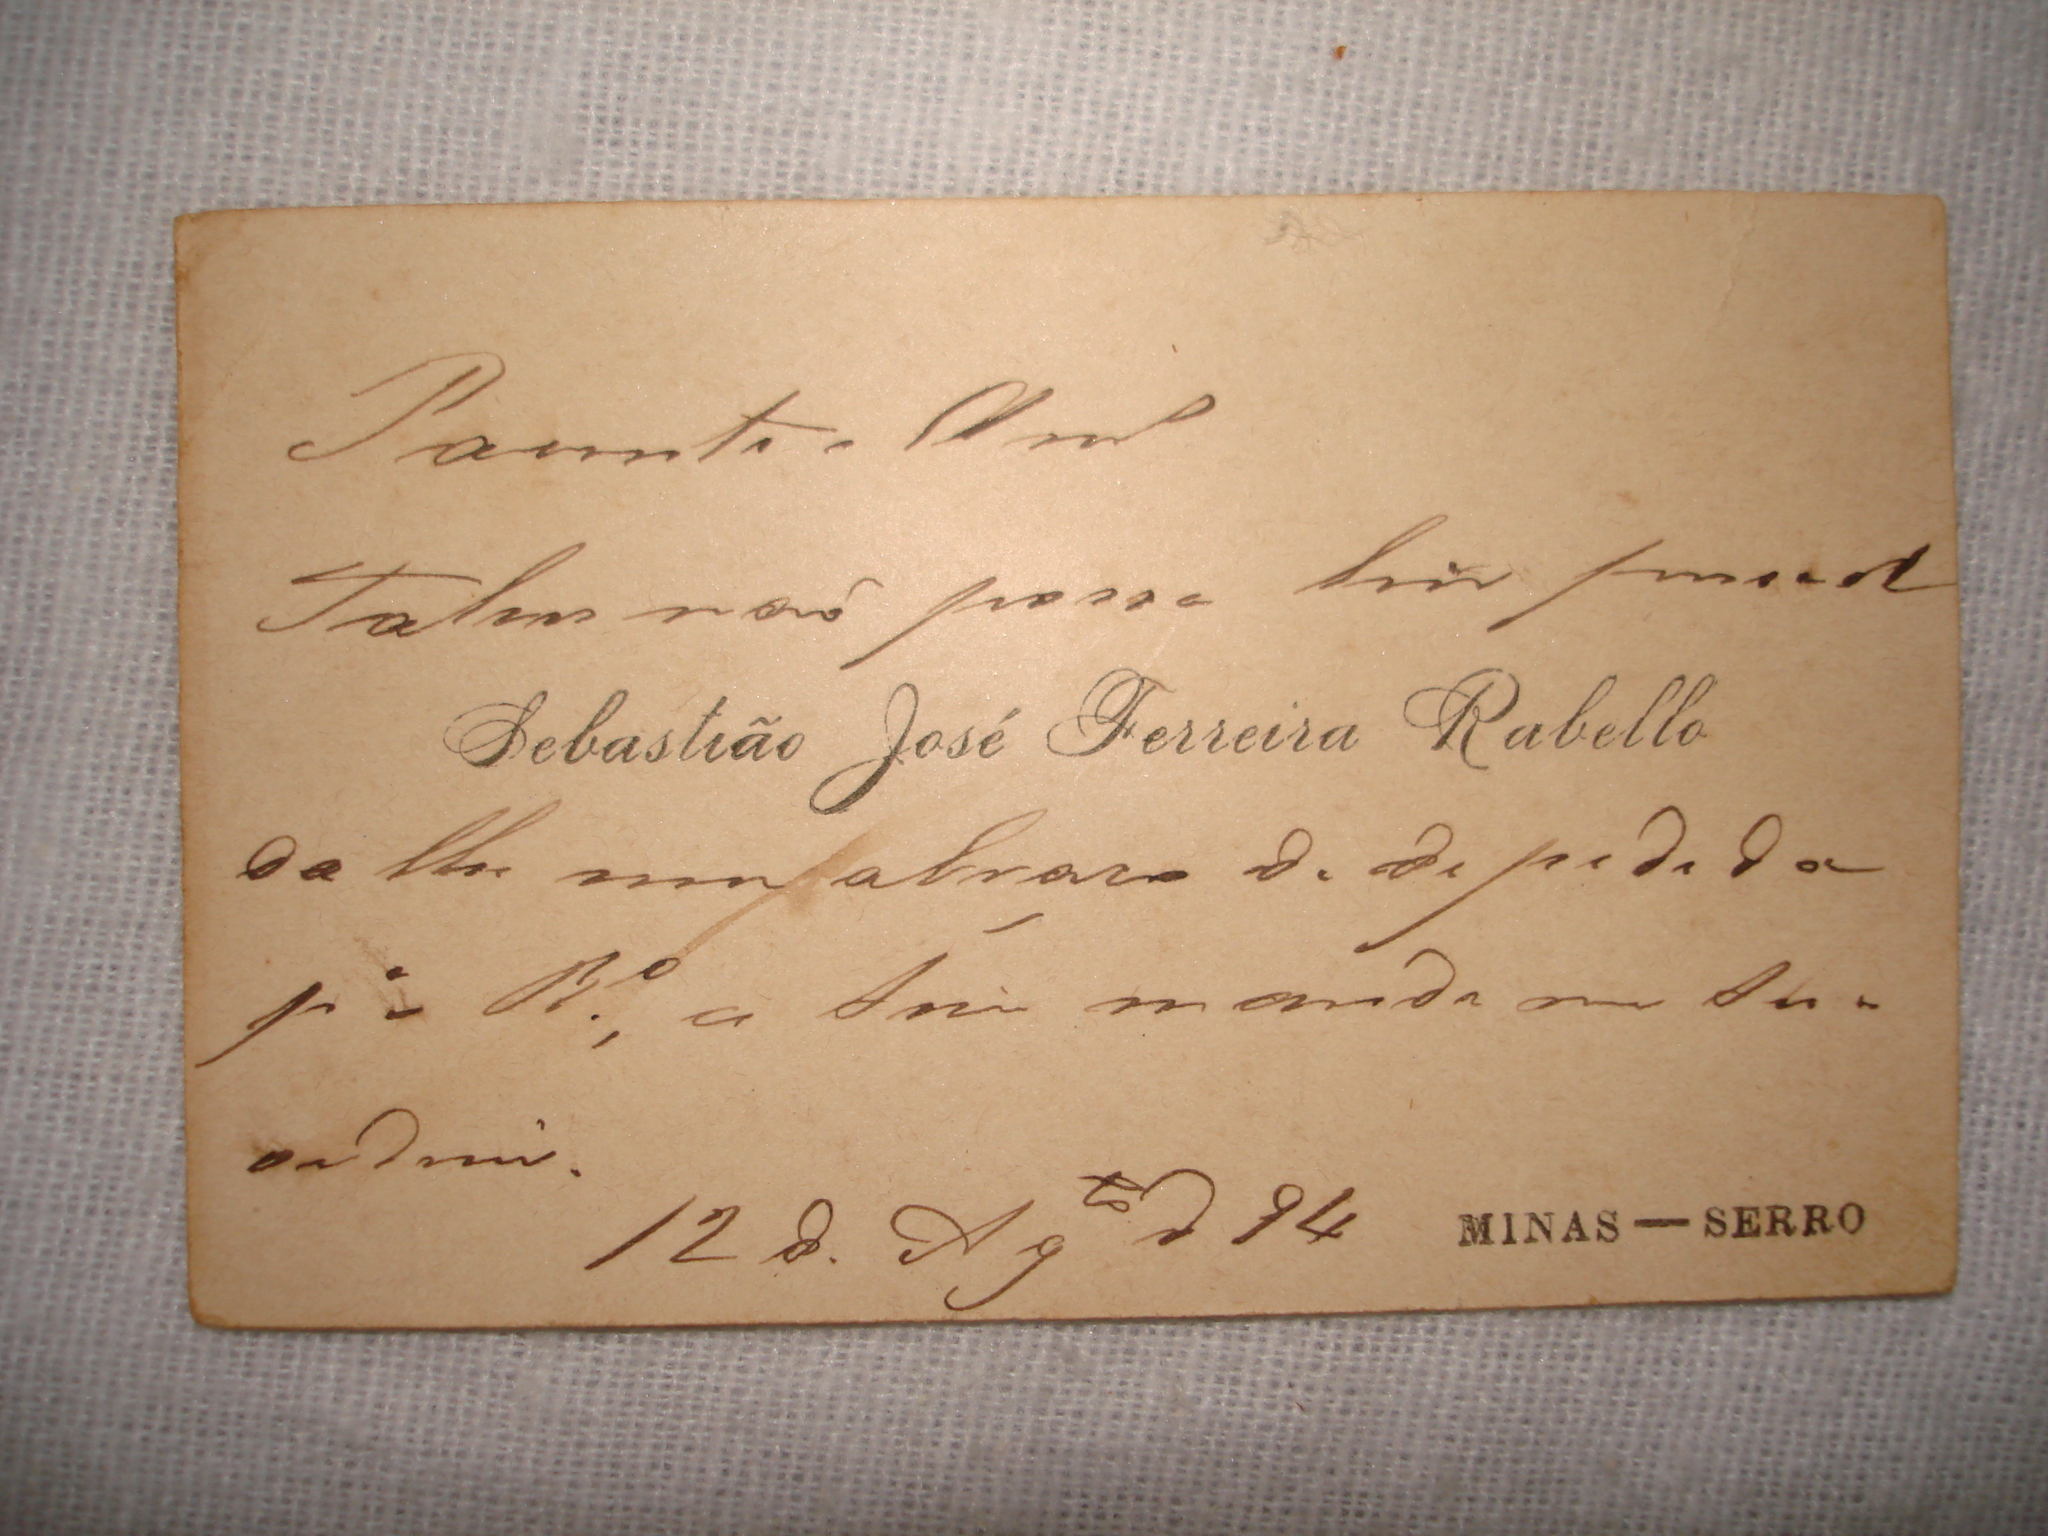 Parente e Amº
Talvez não possa hir pessoal
Sebastião José Ferreira Rabello
da lhe um abraço de despedida
p.ª o R.º, e sim mande me sua
ordem.
12 de Agto de 94
MINAS — SERRO